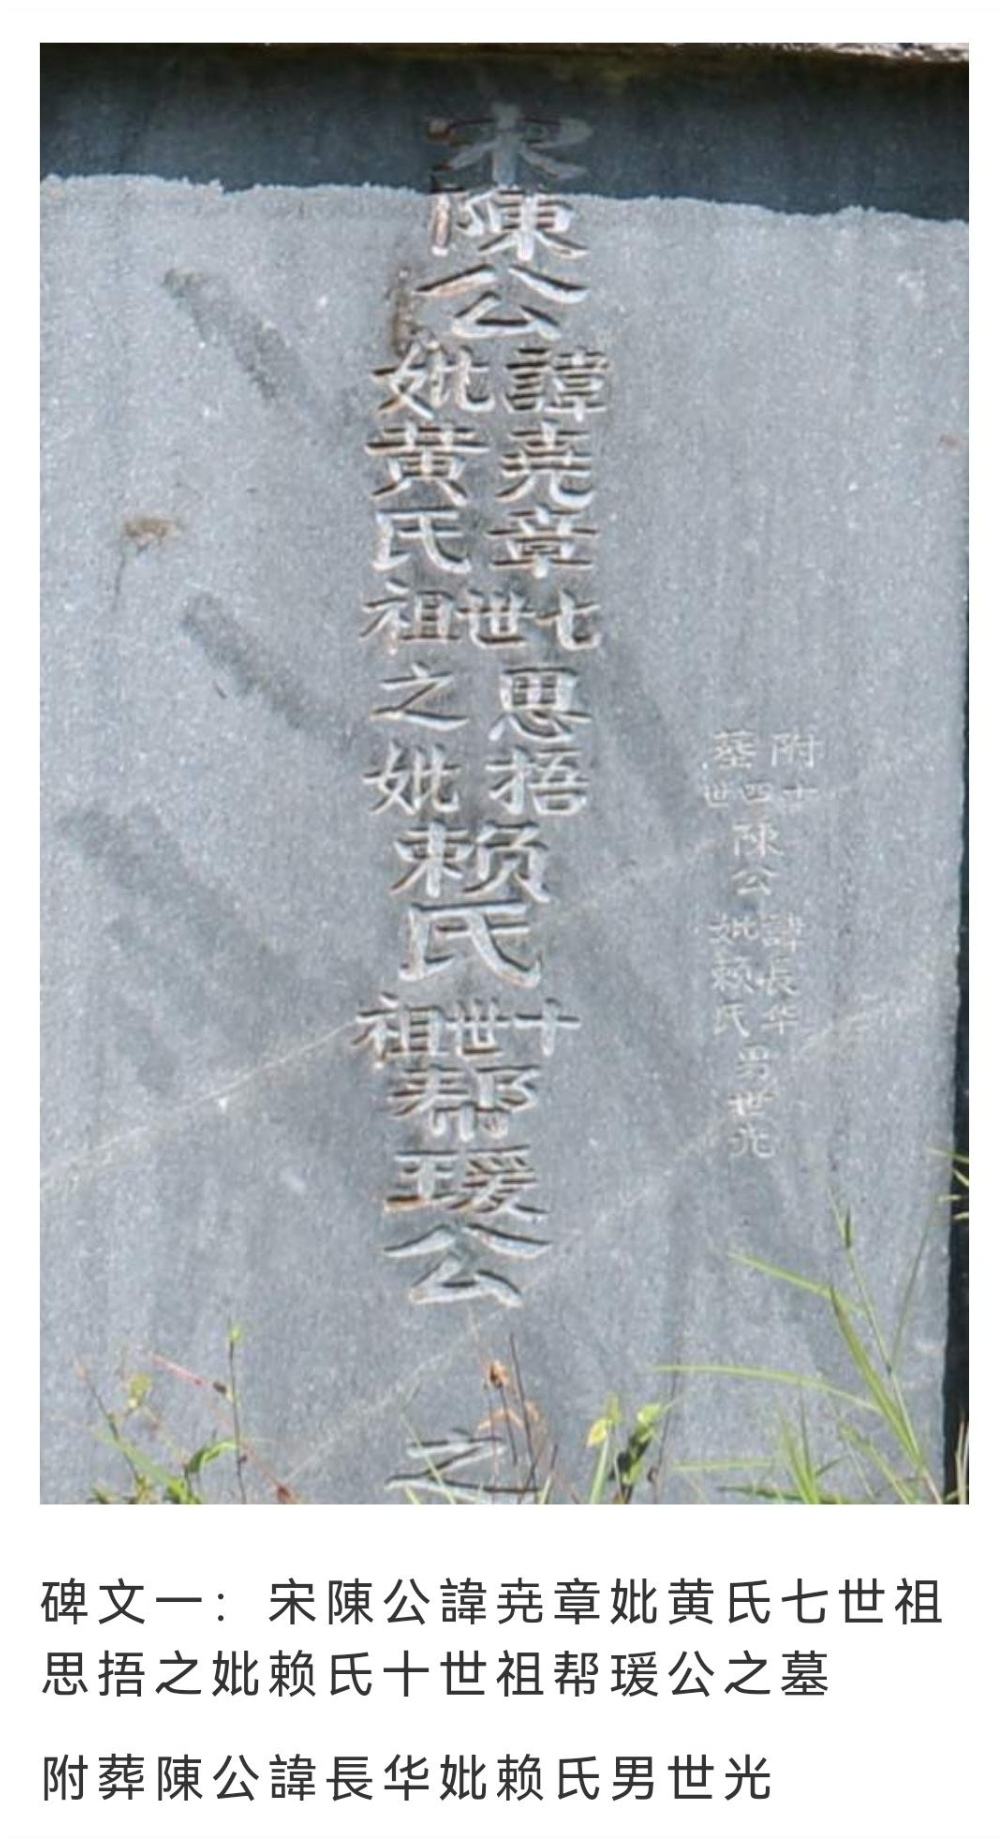 宋陳公
諱尭章
妣黄氏
七世祖
思捂
之妣
赖氏
十世祖
帮瑗公
之
附葬
十四世
陳公
諱長华
妣赖氏
男世光
碑文一：宋陳公諱尭章妣黄氏七世祖
思捂之妣赖氏十世祖帮瑗公之墓
附葬陳公諱長华妣赖氏男世光